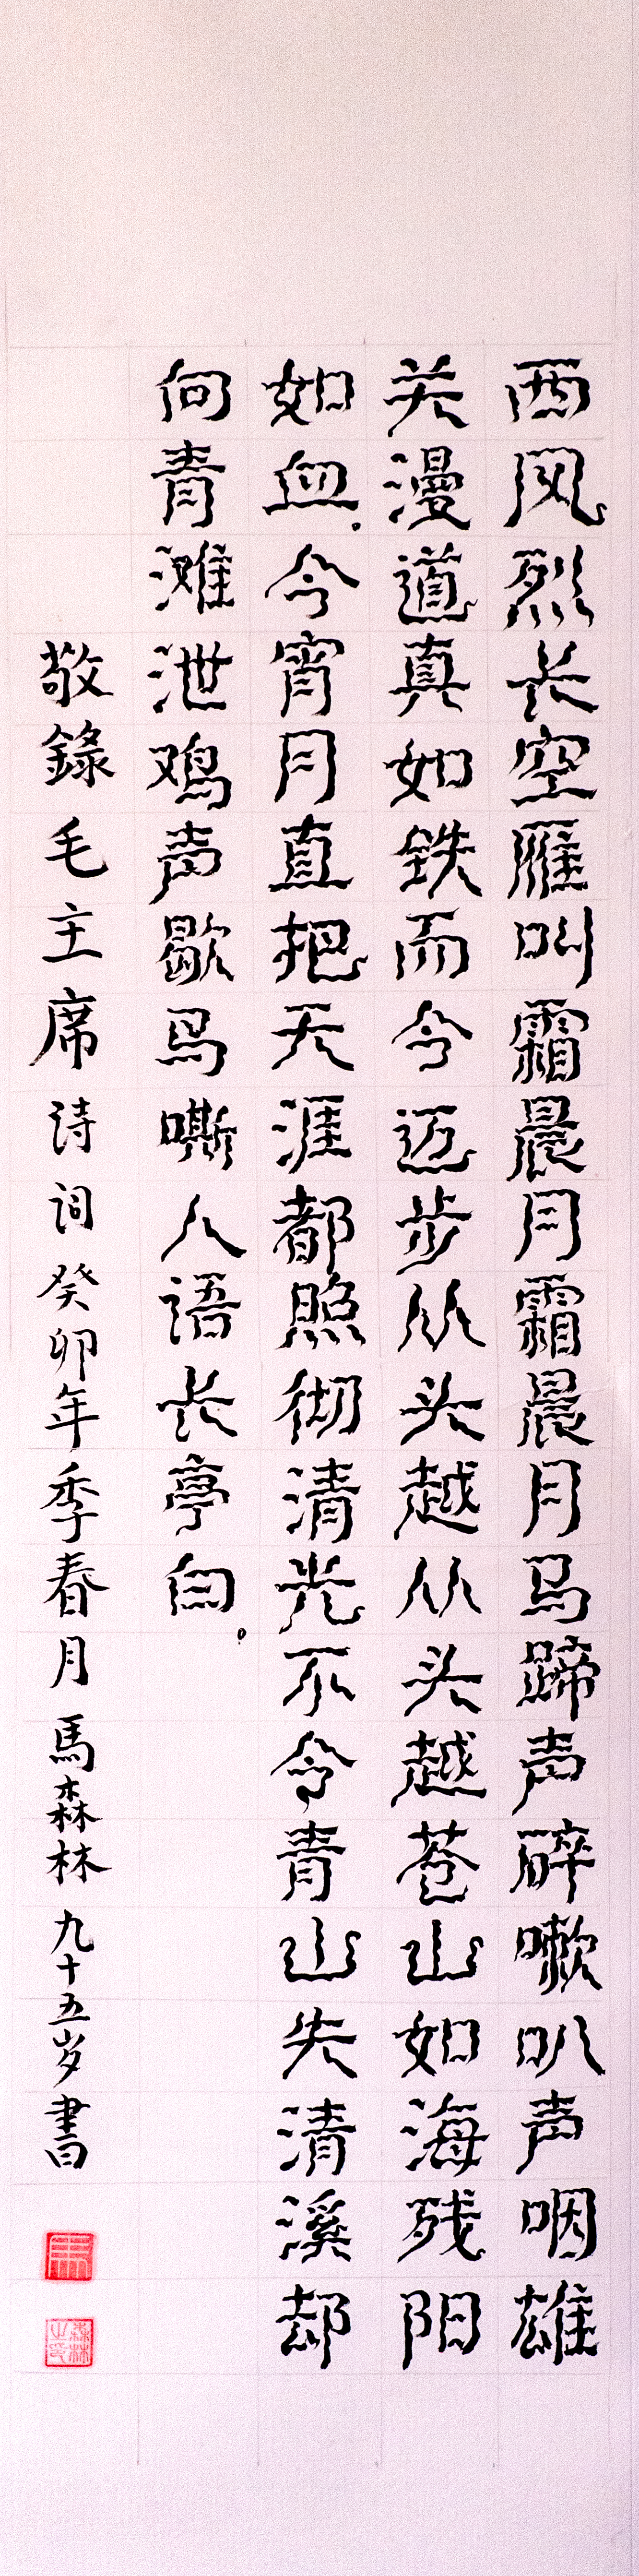 西风烈长空雁叫霜晨月霜晨月马蹄声碎嗽叭声咽雄
关漫道真如铁而今迈步从头越从头越苍山如海残阳
如血.今宵月直把天涯都照彻清光不令青山失清溪却
向青滩泄鸡声歇马嘶人语长亭白。
敬錄毛主席诗词癸卯年季春月馬森林九十五岁書
馬
森林之印